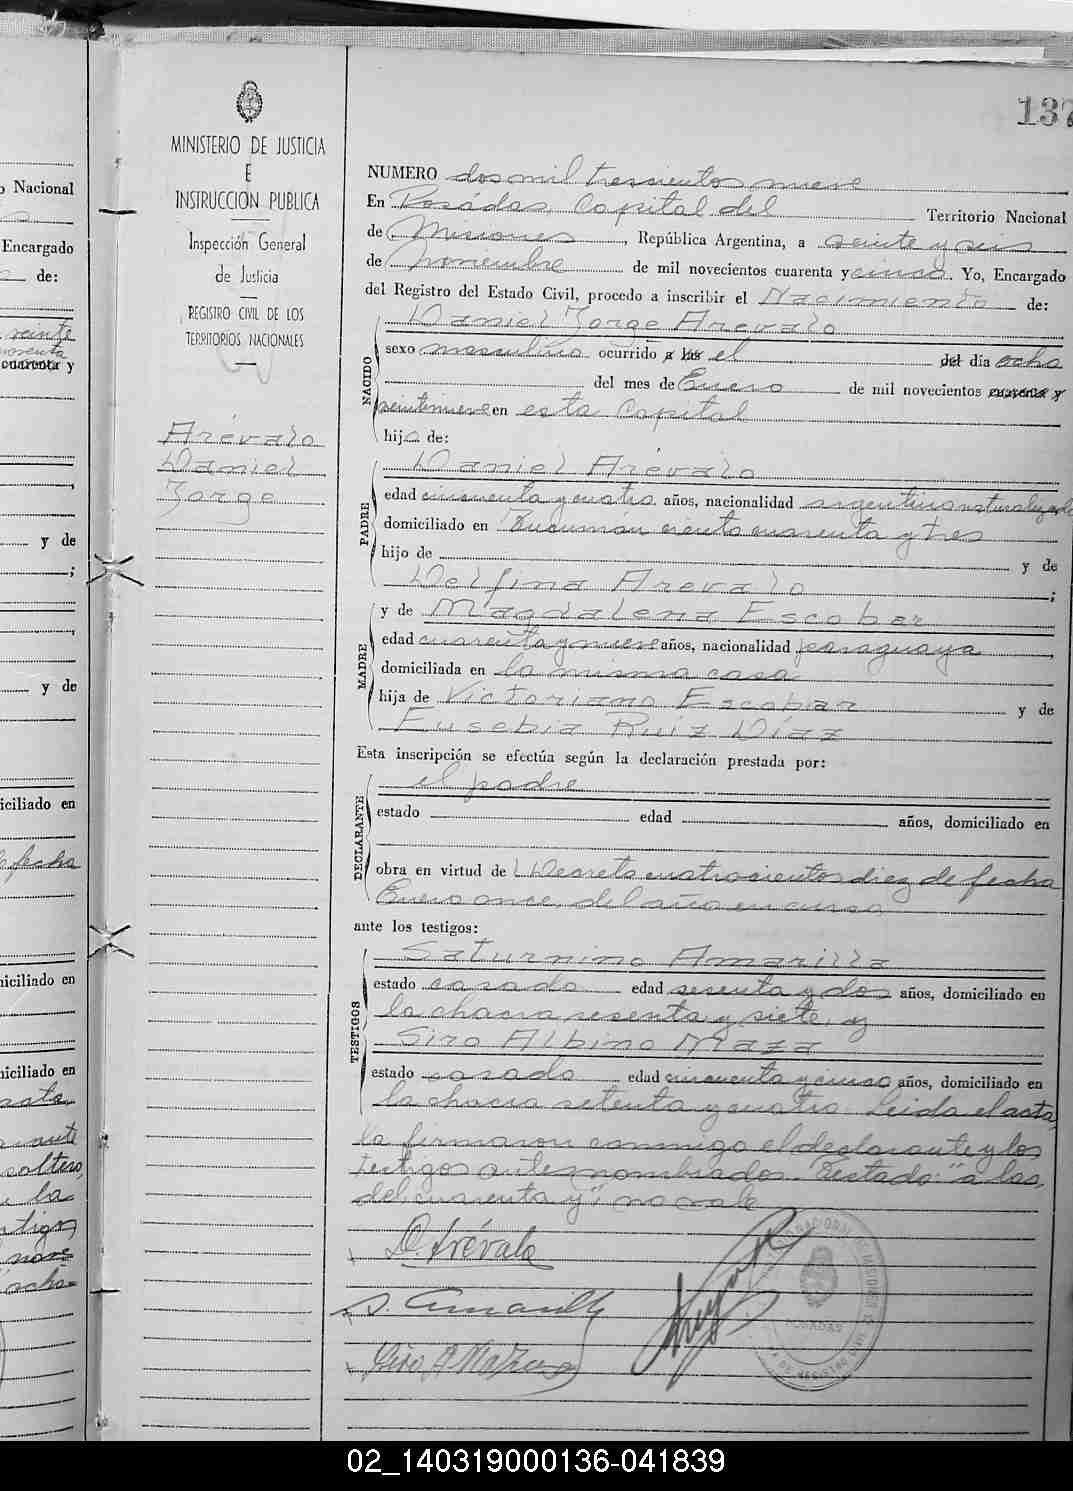 137
MINISTERIO DE JUSTICIA
E
INSTRUCCION PUBLICA
Inspección General
de Justicia
REGISTRO CIVIL DE LOS
TERRITORIOS NACIONALES
Arévalo
Daniel
Jorge
NUMERO dos mil trescientos nueve
En Posadas, Capital del Territorio Nacional
de Misiones, República Argentina, a veinte y seis
de noviembre de mil novecientos cuarenta y cinco. Yo, Encargado
del Registro del Estado Civil, procedo a inscribir el Nacimiento de:
NACIDO
Daniel Jorge Arévalo
sexo masculino ocurrido a las el del día ocho
del mes de Enero de mil novecientos
veintinueve en esta Capital
hijo de:
PADRE
Daniel Arévalo
edad cincuenta y cuatro años, nacionalidad argentino naturalizado
domiciliado en Tucumán ciento cuarenta y tres
hijo de y de
Delfina Arévalo ;
MADRE
y de Magdalena Escobar
edad cuarenta y nueve años, nacionalidad paraguaya
domiciliada en la misma casa
hija de Victoriano Escobar y de
Eusebia Ruíz Díaz
Esta inscripción se efectúa según la declaración prestada por:
DECLARANTE
el padre
estado edad años, domiciliado en
obra en virtud de Decreto cuatrocientos diez de fecha
Enero once, del año en curso
ante los testigos:
TESTIGOS
Saturnino Amarilla
estado casado edad sesenta y dos años, domiciliado en
la chacra sesenta y siete, y
Siro Albino Maza
estado casado edad cincuenta y cinco años, domiciliado en
la chacra setenta y cuatro. Leida el acta,
la firmaron conmigo el declarante y los
testigos antes nombrados. Testado: "a las,
del, cuarenta y", no vale
D. Arévalo
S. Amarilla
Siro A. Maza
POSADAS
Nacional
Encargado
de:
veinte
cuarenta y
y de
;
y de
domiciliado en
fecha
domiciliado en
domiciliado en
soltero,
la
02_140319000136-041839